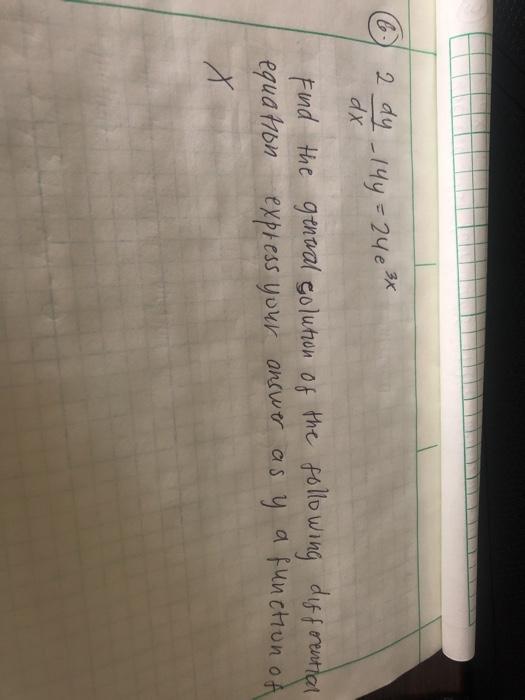 6. 2 dy/dx - 14y = 24e^3x
Find the general solution of the following differential
equation express your answer as y a function of
X